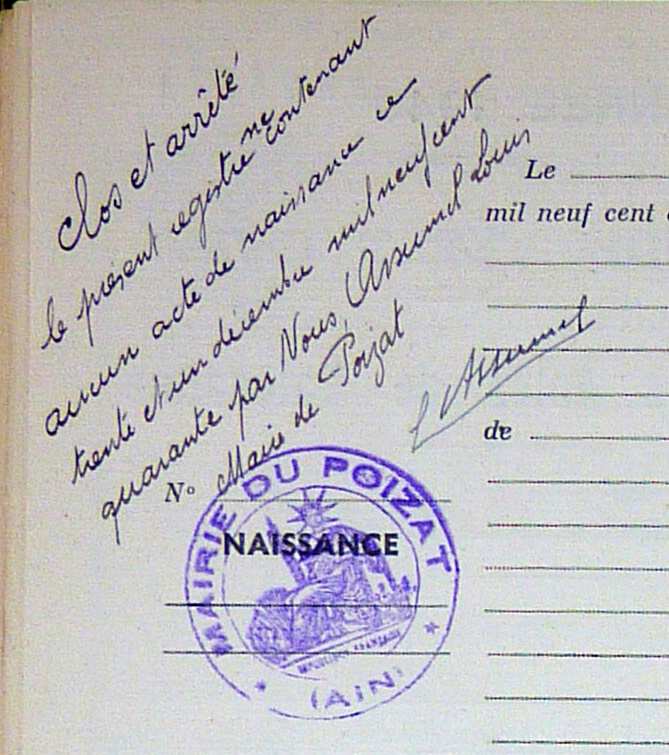 Clos et arrêté
le présent registre ne contenant
aucun acte de naissance ce
trente et un décembre mil neuf cent
quarante par Nous, Assumel Louis
Maire de Poizat
L Assumel
Le
mil neuf cent
de
No
NAISSANCE
MAIRIE DU POIZAT
RÉPUBLIQUE FRANÇAISE
* (AIN) *